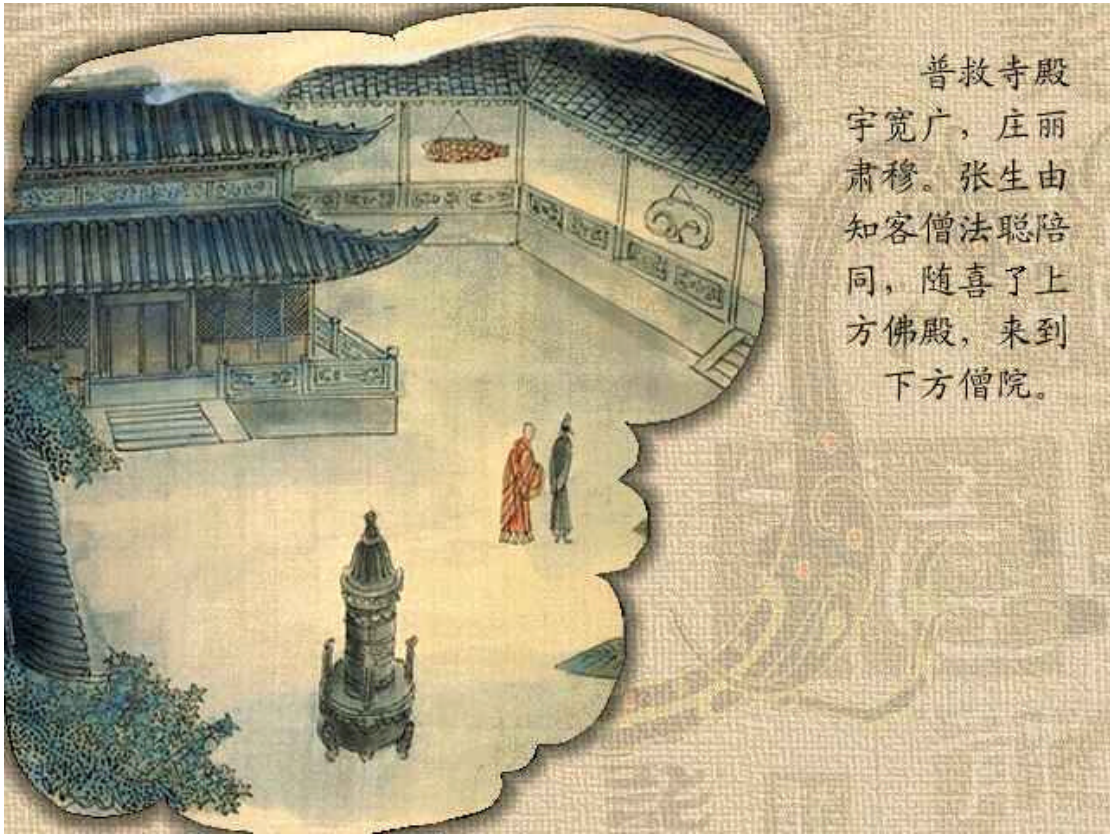 普救寺殿
宇宽广，庄丽
肃穆。张生由
知客僧法聪陪
同，随喜了上
方佛殿，来到
下方僧院。